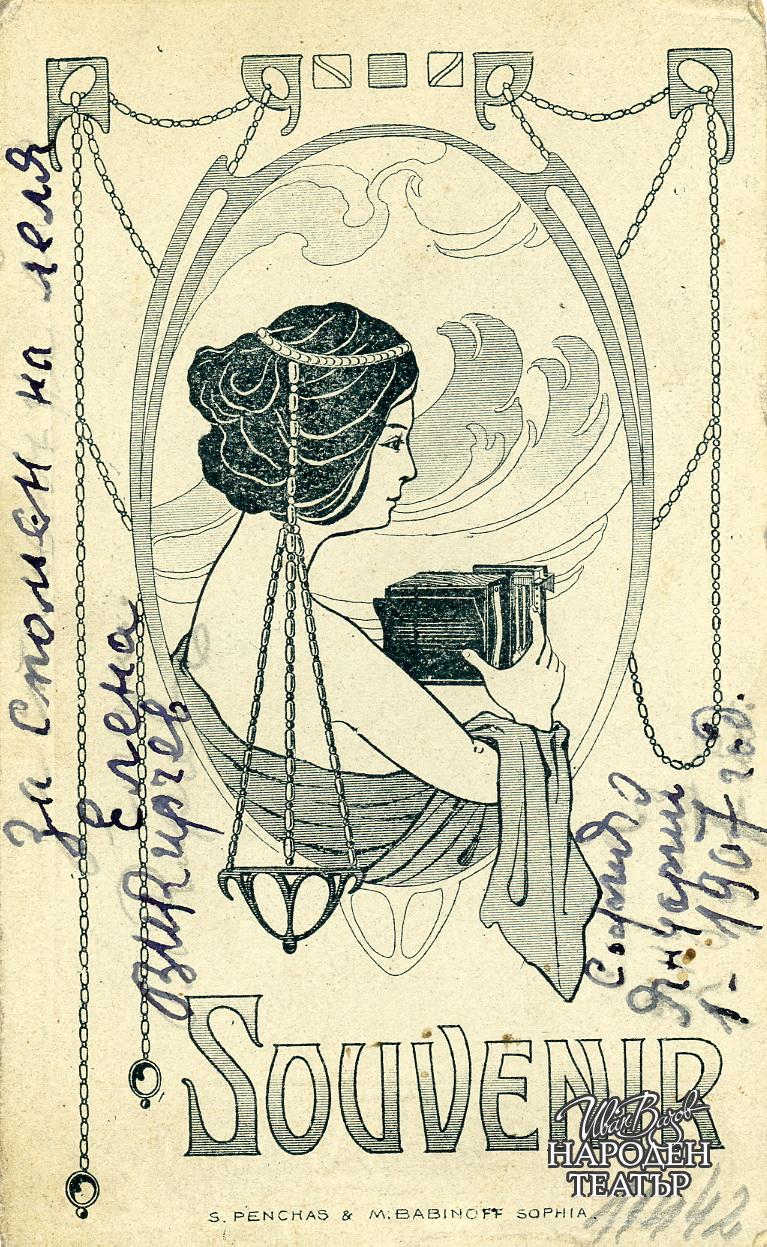 За спомен на леля
Елена
София
Януарий
1-1907 год.
SOUVENIR
Иван Вазов
НАРОДЕН
ТЕАТЪР
S. PENCHAS & M. BABINOFF SOPHIA.